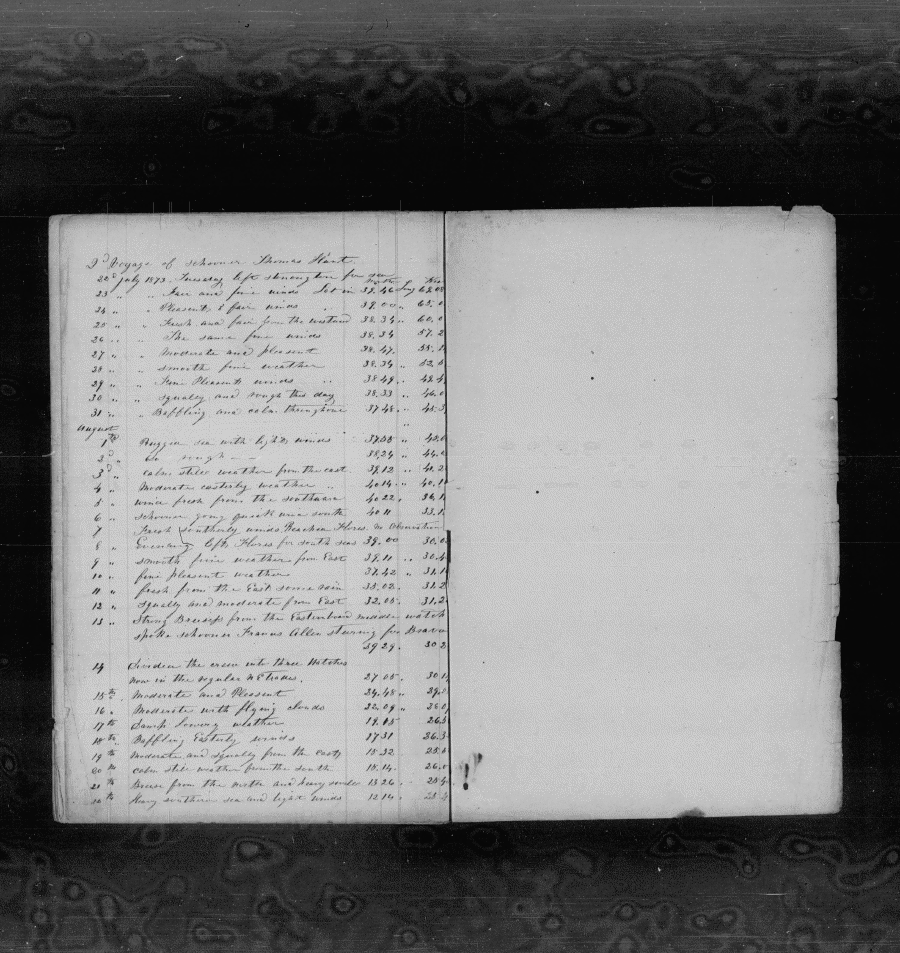 2d Voyage of schooner Thomas Hunt
22d July 1873. Tuesday left Stonington for sea
North Long
23 " " Fair and fine winds Lat in 39.46 Long 68.08
24 " " Pleasant & fair winds 39.00 "
25 " " Fresh and fair from the westard 38.34 " 60.0
26 " " The same fine winds 38.34 57.2
27 " " Moderate and pleasant 38.47.
28 " " smooth fine weather 38.34 " 52.
29 " " Fine Pleasant winds " 38.49 "
30 " " squally and rough this day 38.33 " 46.0
31 " " Baffling and calm throughout 37.48 " 45.3
August
1th Rugged sea with light winds
2d " do rough 38.24 " 44.0
3d " calm still weather from the east. 39.12 " 40.2
4 " Moderate easterly weather " 40.14 " 40.1
5 " wind fresh from the southward 40.22 36.1
6 " schooner going quick wind south 40.11 33.1
7 Fresh southerly winds Reached Flores. no Observation
8 " Evening left Flores for south seas 39.00 30.0
9 " smooth fine weather from East 39.11 " 30.4
10 " fine pleasant weather 37.42 " 31.1
11 " fresh from the East some rain 35.02 . 31.2
12 " squally and moderate from East 32.05 . 31.2
13 " Strong Breezes from the Eastenboard middle watch
spoke schooner Francis Allen stearing for Brava
29.29 . 30.2
14 Divided the crew into three Watches
now in the regular NE trades. 27.05 . 30.1
15th . Moderate and Pleasant 24.48 "
16 . Moderate with flying clouds 22.09 "
17th Damp lowery weather 19.
18th " Baffling Easterly winds 17.31 26.3
19th Moderate and squally from the East 15.32 25.
20th calm still weather from the south 15.14 . 26.0
21th Breese from the north and heavy 13.26 . 25.4
22th Heavy southern sea and light winds 12.14 . 25.4